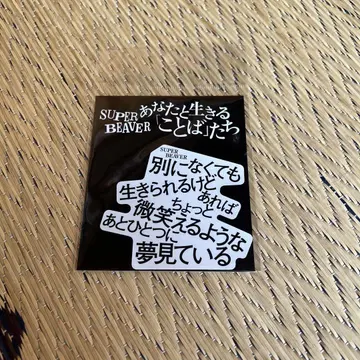 SUPER BEAVER
あなたと生きる
「ことば」たち
SUPER
BEAVER
別になくても
生きられるけど
あれば
ちょっと
微笑えるような
あとひとつに
夢見ている